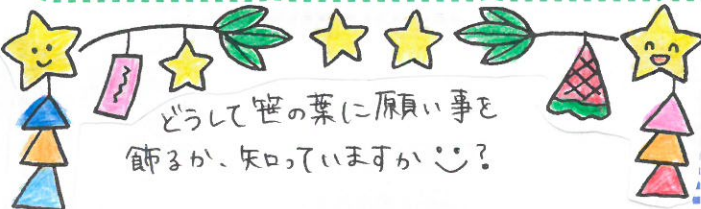 どうして笹の葉に願い事を
飾るか、知っていますか☺?